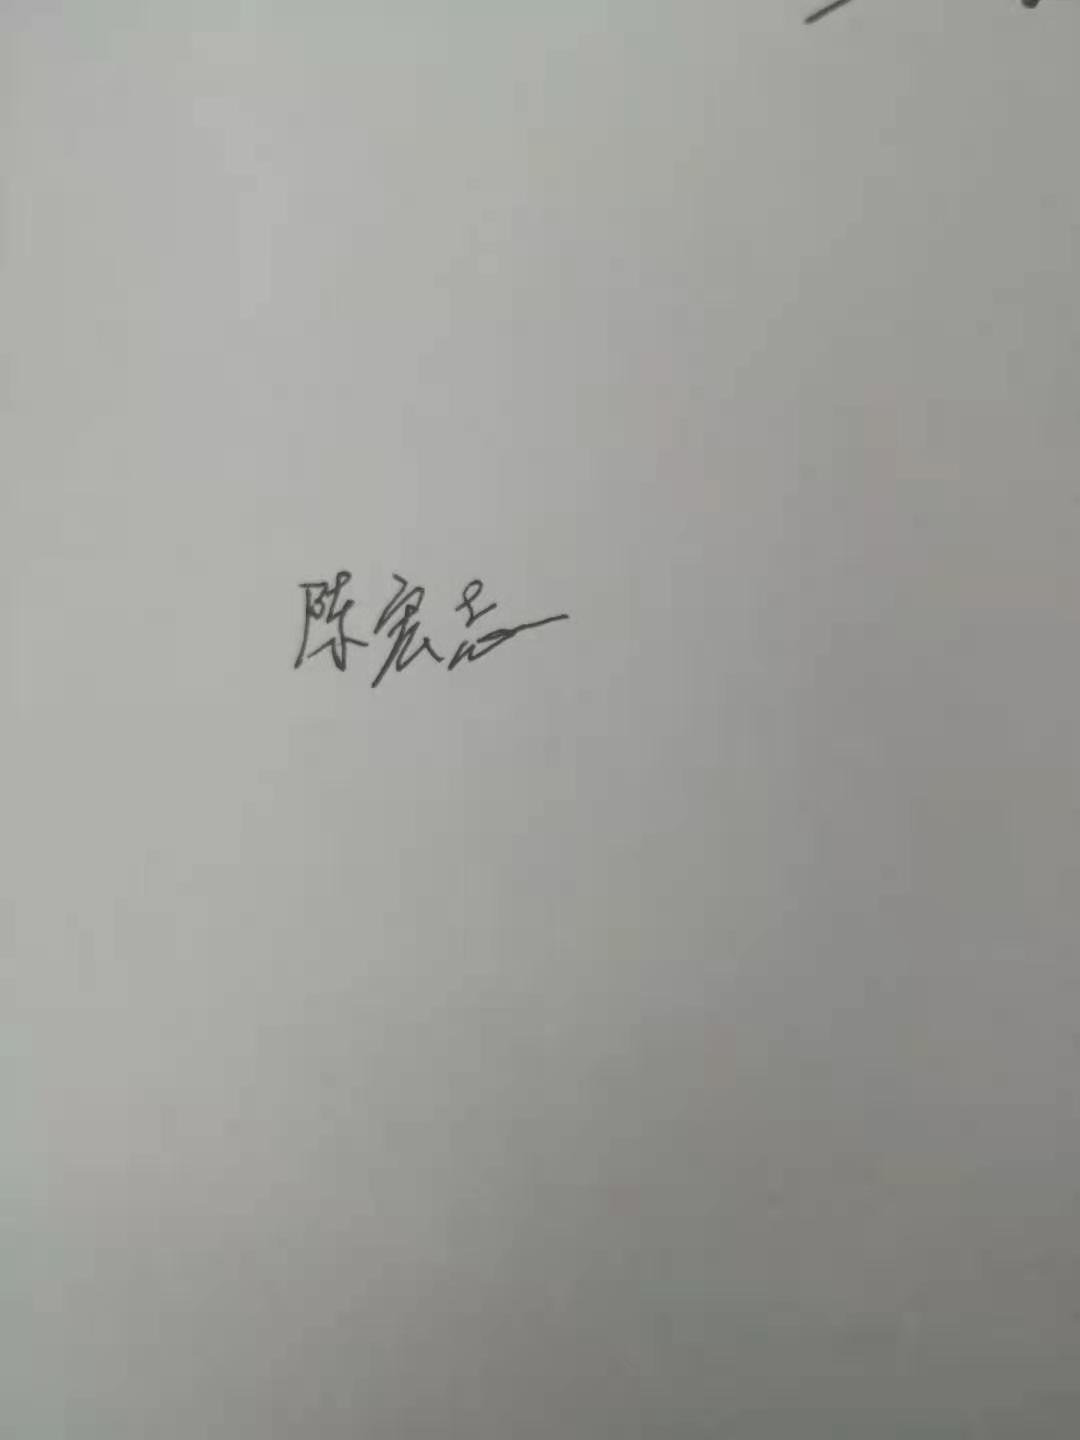 陈宏志